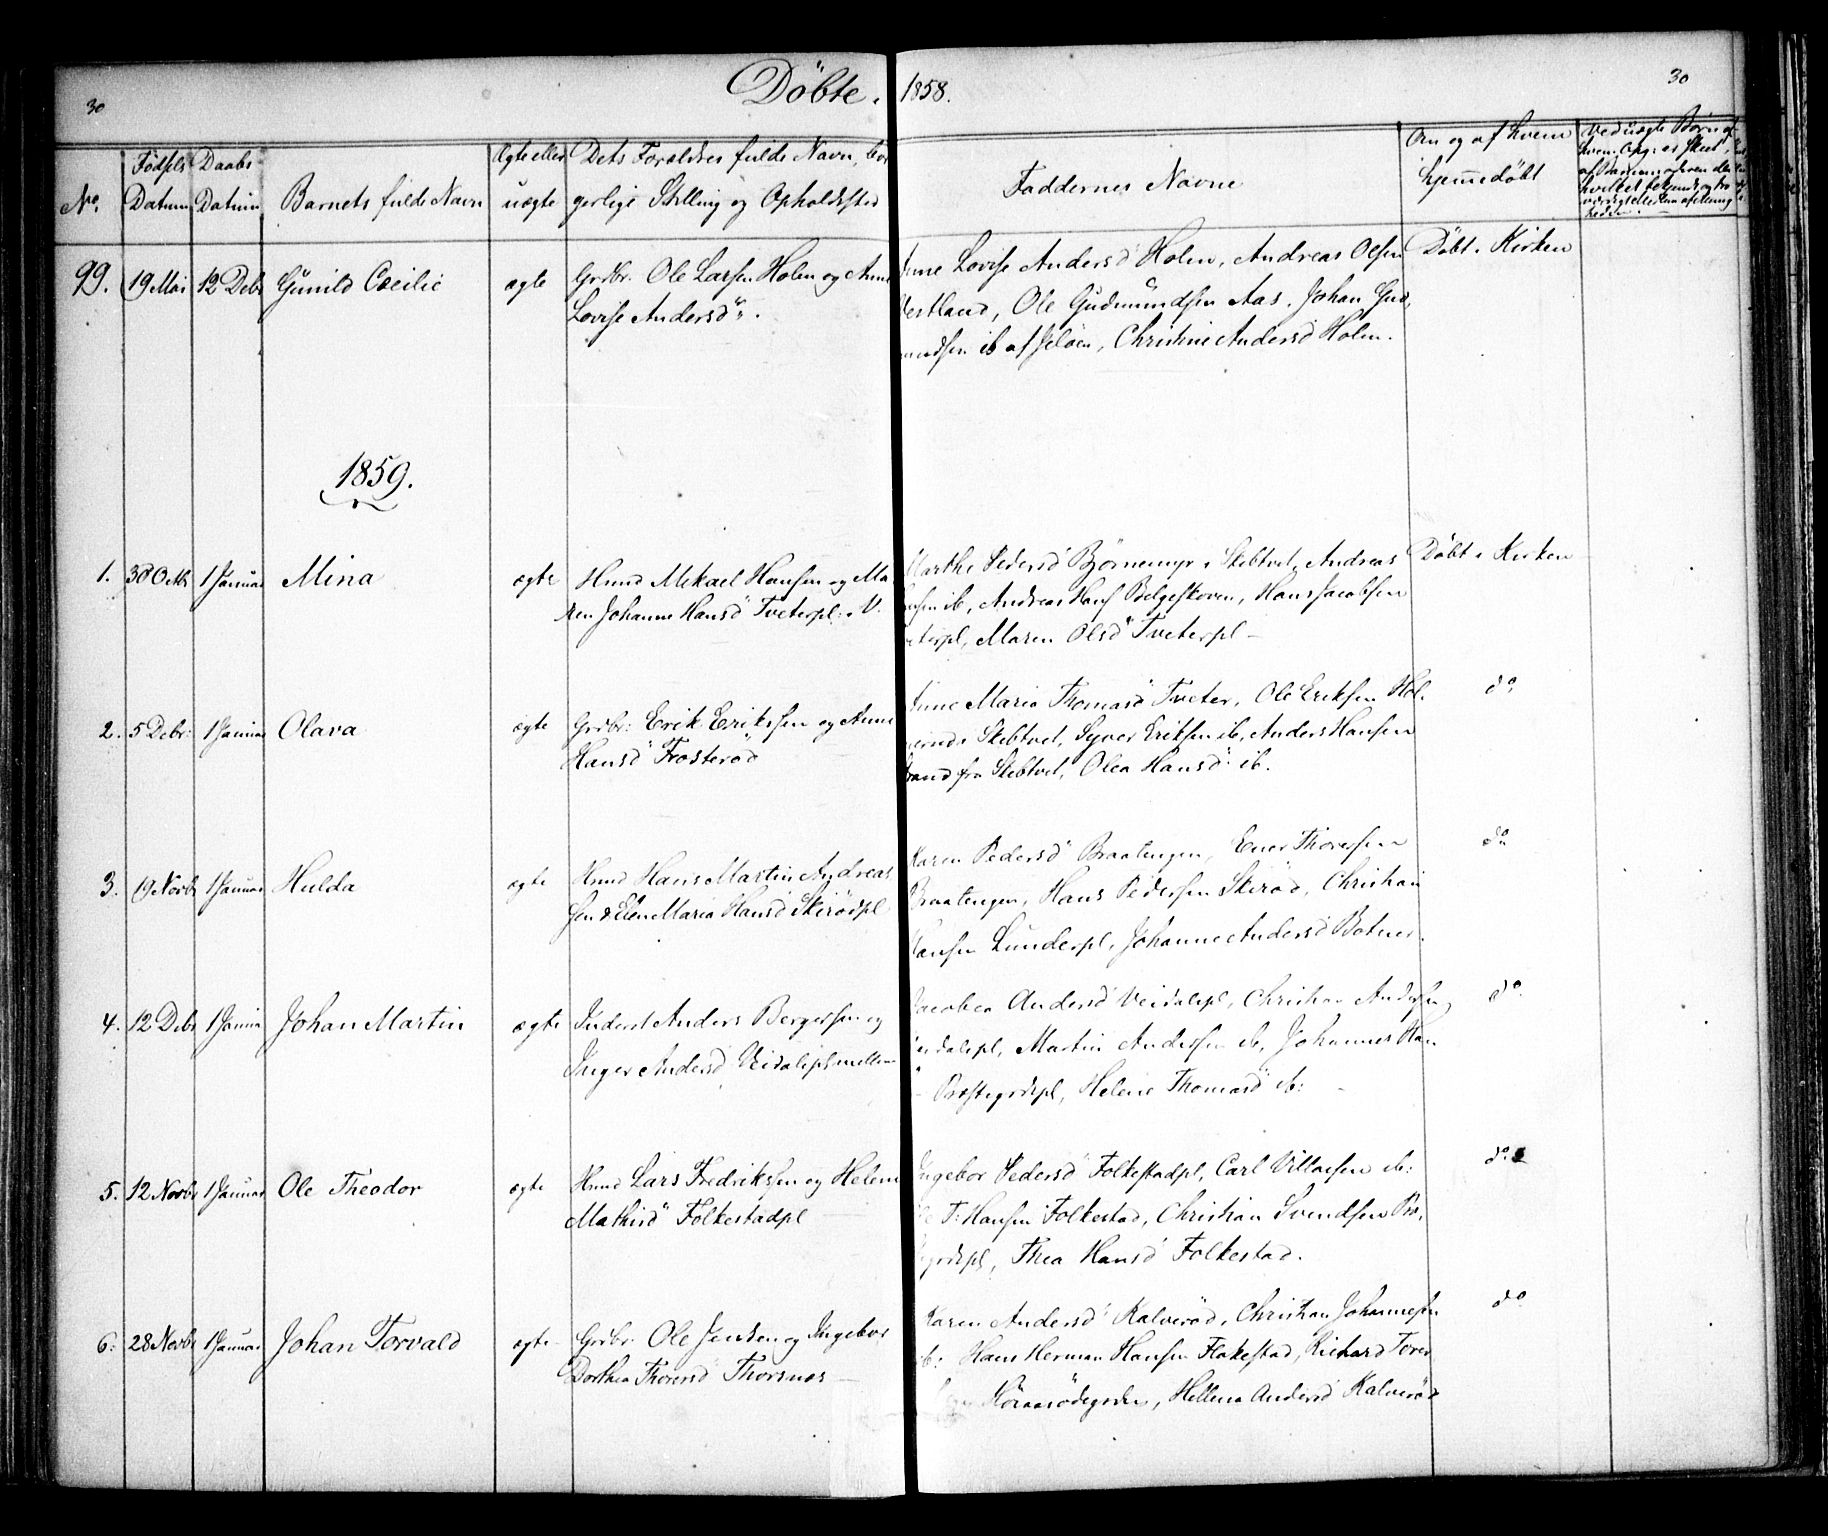 30 Döbte. 1858. 30
No. Födsels Datum Daabs Datum Barnets fulde Navn Ægte eller uægte Dets Forældres fulde Navn, borgerlige Stilling og Opholdssted Faddernes Navne Om og af hvem hjemmedöbt Ved uægte Börn af
99. 19 Mai 12 Debr Gunild Cæcilie ægte Grdbr. Ole Larsen Holm og Anne
Lovise Andersd".
Anne Lovise Andersd Holm, Andreas Olsen Döbt i Kirken
Vestland, Ole Gudmundsen Aas. Johan Gud,
mundsen ib af Jelöen, Christine Andersd Holm.
1859.
1. 30 Octbr 1 Januar Mina ægte Hmd Mekael Hansen og Ma
ren Johanne Hansd" Tveterpl: i V.
Marthe Pedersd Björnemyr i Skibtvet, Andreas Döbt i Kirken
Hansen ib, Andreas Hans Bolgeskoven, Hans Jacobsen
Tveterpl, Maren Olsd" Tveterpl –
2. 5 Debr: 1 Januar Olava ægte Grdbr: Erik Eriksen og Anne
Hansd" Frosterød
Anne Maria Thomasd" Tveter, Ole Eriksen Hol. do
Skibtvet, Syver Eriksen ib, Anders Hansen
fra Skibtvet, Olea Hansd" ib.
3. 19 Novbr 1 Januar Hulda ægte Hmd Hans Martin Andreas
sen & Ellen Maria Hansd Skirödpl
Karen Pedersd" Braatengen, Ener Thoresen do
Braatengen, Hans Pedersen Skiröd, Christian
Hansen Lunderpl, Johanne Andersd Botner.
4. 12 Debr 1 Januar Johan Martin ægte Inderst Anders Bergersen og
Inger Andersd Veidalspl mellem
Jacobea Andersd Veidalspl, Christian Andersen do
Veidalspl, Martin Andersen ib, Johannes Han
Præstegrdspl, Helene Thomasd" ib:
5. 12 Novbr 1 Januar Ole Theodor ægte Hmd Lars Fredriksen og Helene
Mathisd" Folkestadpl
Ingebor Pedersd" Folkestadpl, Carl Villasen ib: do
Ole T: Hansen Folkestad, Christian Svendsen Præ,
grdspl, Thea Hansd Folkestad.
6. 28 Novbr 1 Januar Johan Torvald ægte Grdbr. Ole Jensen og Ingebor
Dorthea Thoresd" Thorsnæs –
Karen Andersd" Kalveröd, Christian Johannesen do
ib: Hans Herman Hansen Flakestad, Richard Torer
Hellena Andersd Kalveröd